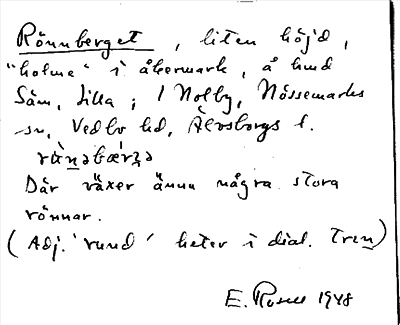 Rönnberget, liten höjd,
"holme" i åkermark, å hmd
Säm, Lilla; i Nolby, Nössemarks
sn, Vedbo hd, Älvsborgs l.
Där växer ännu några stora
rönnar.
(Adj. 'rund' heter i dial.
E. 1948